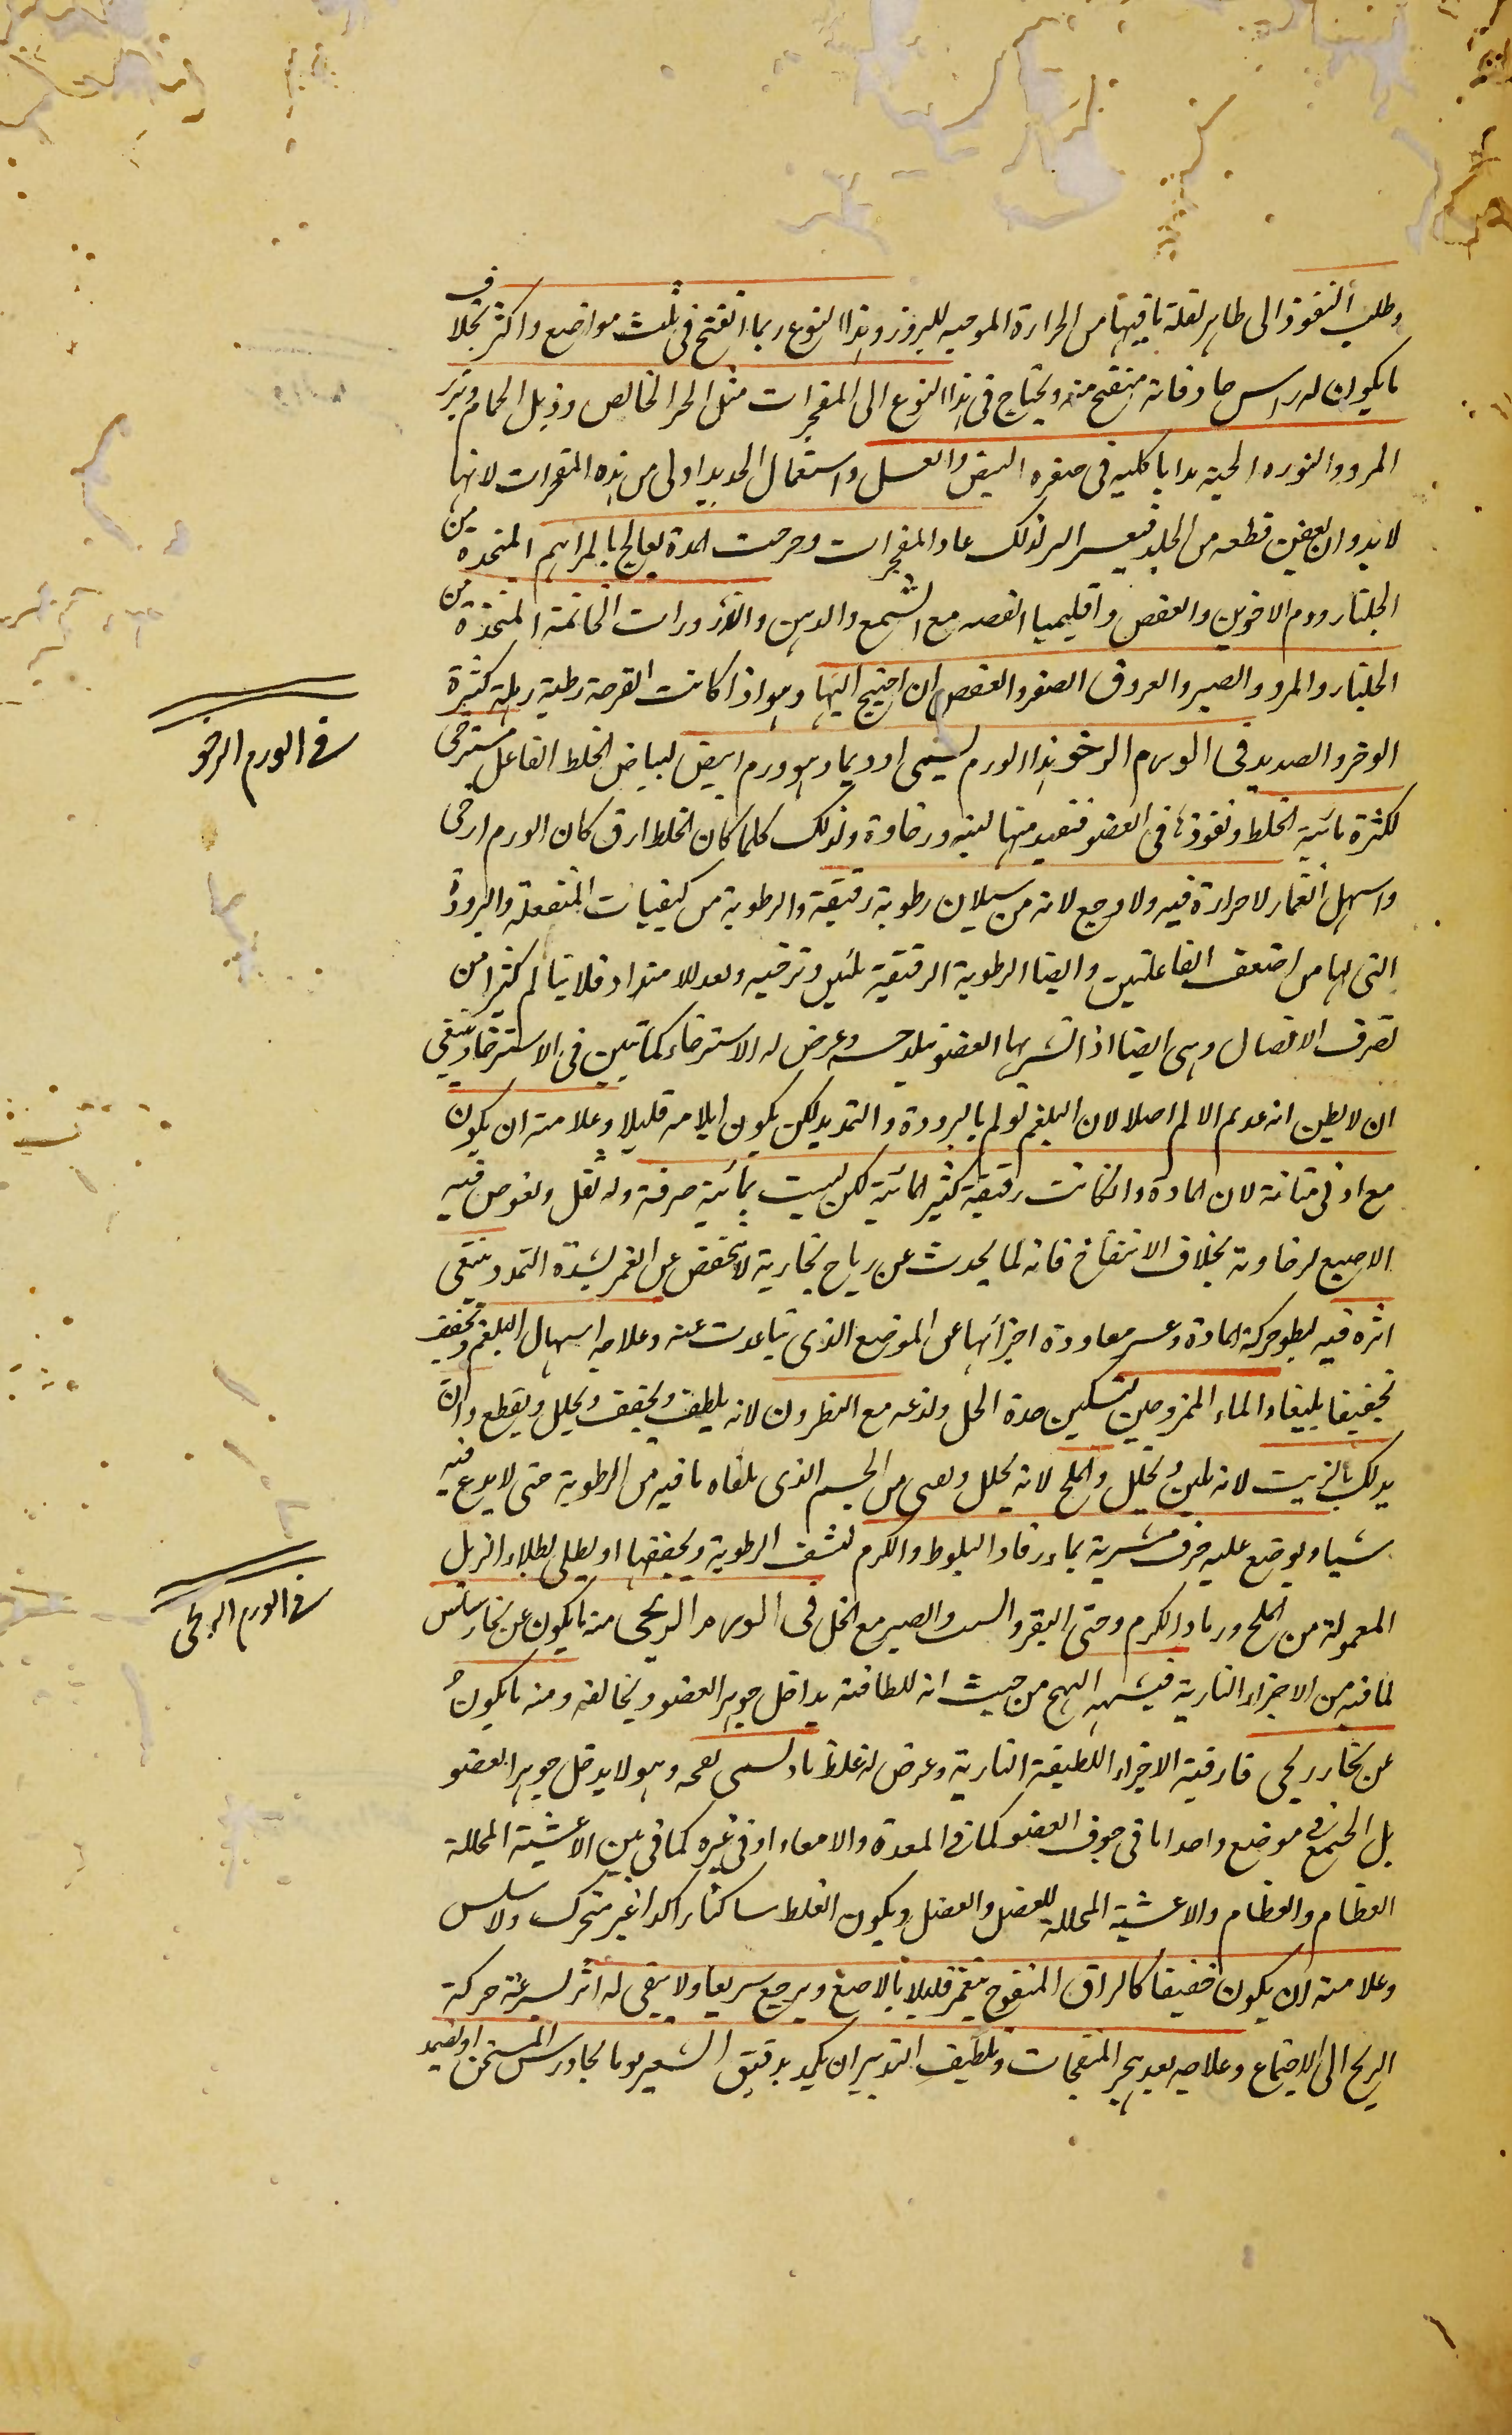 وطلب النفوذ الى ظاهر لقلة ما فيها من الحرارة الموجبه للبروز وهذا النوع ربما انفتح فى ثلث مواضع واكثر بخلاف
ما يكون له راس حاد فانه منفتح منه ويحتاج فى هذا النوع الى المفجرات مثل الخمر الخالص وذبل الحمام وبزر
المرو والنوره الحية مدابا كليه فى صفره البيض والعسل واستعمال الحديد اولى من هذه المفجرات لانها
لابد وان يعفن قطعه من الجلد فيعسر البر لذلك عاد المفجرات وخرجت المدة يعالج بالمراهم المتخذة من
الجلنار ودم الاخوين والعفص واقليميا الفضه مع الشمع والدهن والذرورات الخاتمة المتخذة من
الجلنار والمرو والصبر والعروق الصفر والعفص ان احتيج اليها وهو اذا كانت القرحة رطبة رهلة كثيرة
الوضر والصديد فى الورم الرخو هذا الورم يسمى اوديما وهو ورم ابيض لبياض الخلط الفاعل مسترخى
لكثرة مائية الخلط ونفوذها فى العضو فتفيد منها لينه ورخاوة ولذلك كلما كان الخلط ارق كان الورم ارخى
واسهل انغمار لا حرارة فيه ولا وجع لانه من سيلان رطوبة رقيقة والرطوبة من كيفيات المنفعلة والبرودة
التى لها من اضعف الفاعلتين وايضا الرطوبة الرقيقة تلين وترخيه وتعد للامتداد فلا يتالم كثيرا من
تفرق الاتصال وهى ايضا اذا تشربها العضو تبلد حسه وعرض له الاسترخاء كما تبين فى الاسترخاء وينبغى
ان لا يظن انه عديم الالم اصلا لان البلغم تولم بالبرودة والتمديد لكن يكون ايلامه قليلا وعلامته ان يكون
مع ادنى متانة لان المادة وان كانت رقيقة كثير المائية لكن ليست بمائية صرفة وله ثقل وتغوص فيه
الاصبع لرخاوته بخلاف الانتفاخ فانه لما يحدث عن رياح بخارية لا ينخفض عن الغمر لشدة التمدد ويبقى
اثره فيه لبطو حركة المادة وعسر معاودة اجزائها عن الموضع الذى تباعدت عنه وعلاجه اسهال البلغم وتجفيف
تجفيفا بليغا والماء الممزوجين لتسكين حدة الخل ولذعه مع النطرون لانه يلطف ويجفف ويحلل ويقطع وان
يدلك بالزيت لانه يلين ويحلل والملح لانه يحلل ويفنى من الجسم الذى يلقاه ما فيه من الرطوبة حتى لا يدع فيه
شيا ويوضع عليه خرق مشربة بماء رماد البلوط والكرم لتنشف الرطوبة ويجففها او يطلى بطلاء الزبل
المعمولة من الملح ورماد الكرم وخثى البقر والشب والصبر مع الخل فى الورم الريحى منه ما يكون عن بخار سلس
لما فيه من الاجزاء النارية فيشبه التهيج من حيث انه للطافته يداخل جوهر العضو ويخالفه ومنه ما يكون
عن بخار ريحى فارقية الاجزاء اللطيفة النارية وعرض له غلظ ما ويسمى نفخه وهو لا يدخل جوهر العضو
بل اجتمع فى موضع واحد اما فى جوف العضو كما فى المعدة والامعاء او فى غيره كما فى بين الاغشية المحللة
العظام والعظام والاغشية المحللة للعضل والعضل ويكون الغلظ ساكنا راكدا غير متحرك ولا سلس
وعلامته ان يكون خفيفا كالزق المنفوخ ينغمر قليلا بالاصبع ويرجع سريعا ولا يبقى له اثر لسرعة حركة
الريح الى الاجتماع وعلاجه بعد هجر المنفخات وتلطيف التدبير ان يكمد بدقيق الشعير او بالجاورس المسخن او يضمد
فى الورم الرخو
فى الورم الريحى